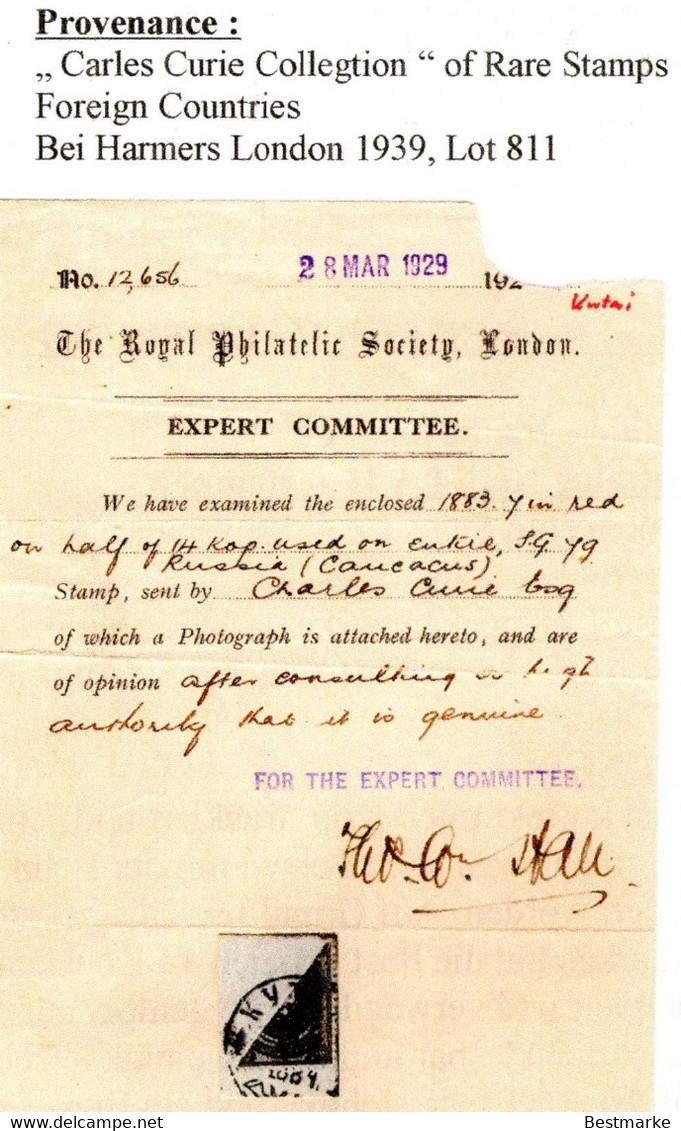 Provenance :
„ Carles Curie Collegtion “ of Rare Stamps
Foreign Countries
Bei Harmers London 1939, Lot 811
No. 12,656 28 MAR 1929 192
Kutai
The Royal Philatelic Society, London.
EXPERT COMMITTEE.
We have examined the enclosed 1883. 7 in red
on half of 14 Kop. used on entire, S.G. 79
Russia (Caucacus)
Stamp, sent by Charles Curie Esq
of which a Photograph is attached hereto, and are
of opinion after consulting a high
authority that it is genuine.
FOR THE EXPERT COMMITTEE.
Hall.
КУТ
delcampe.net
Bestmarke